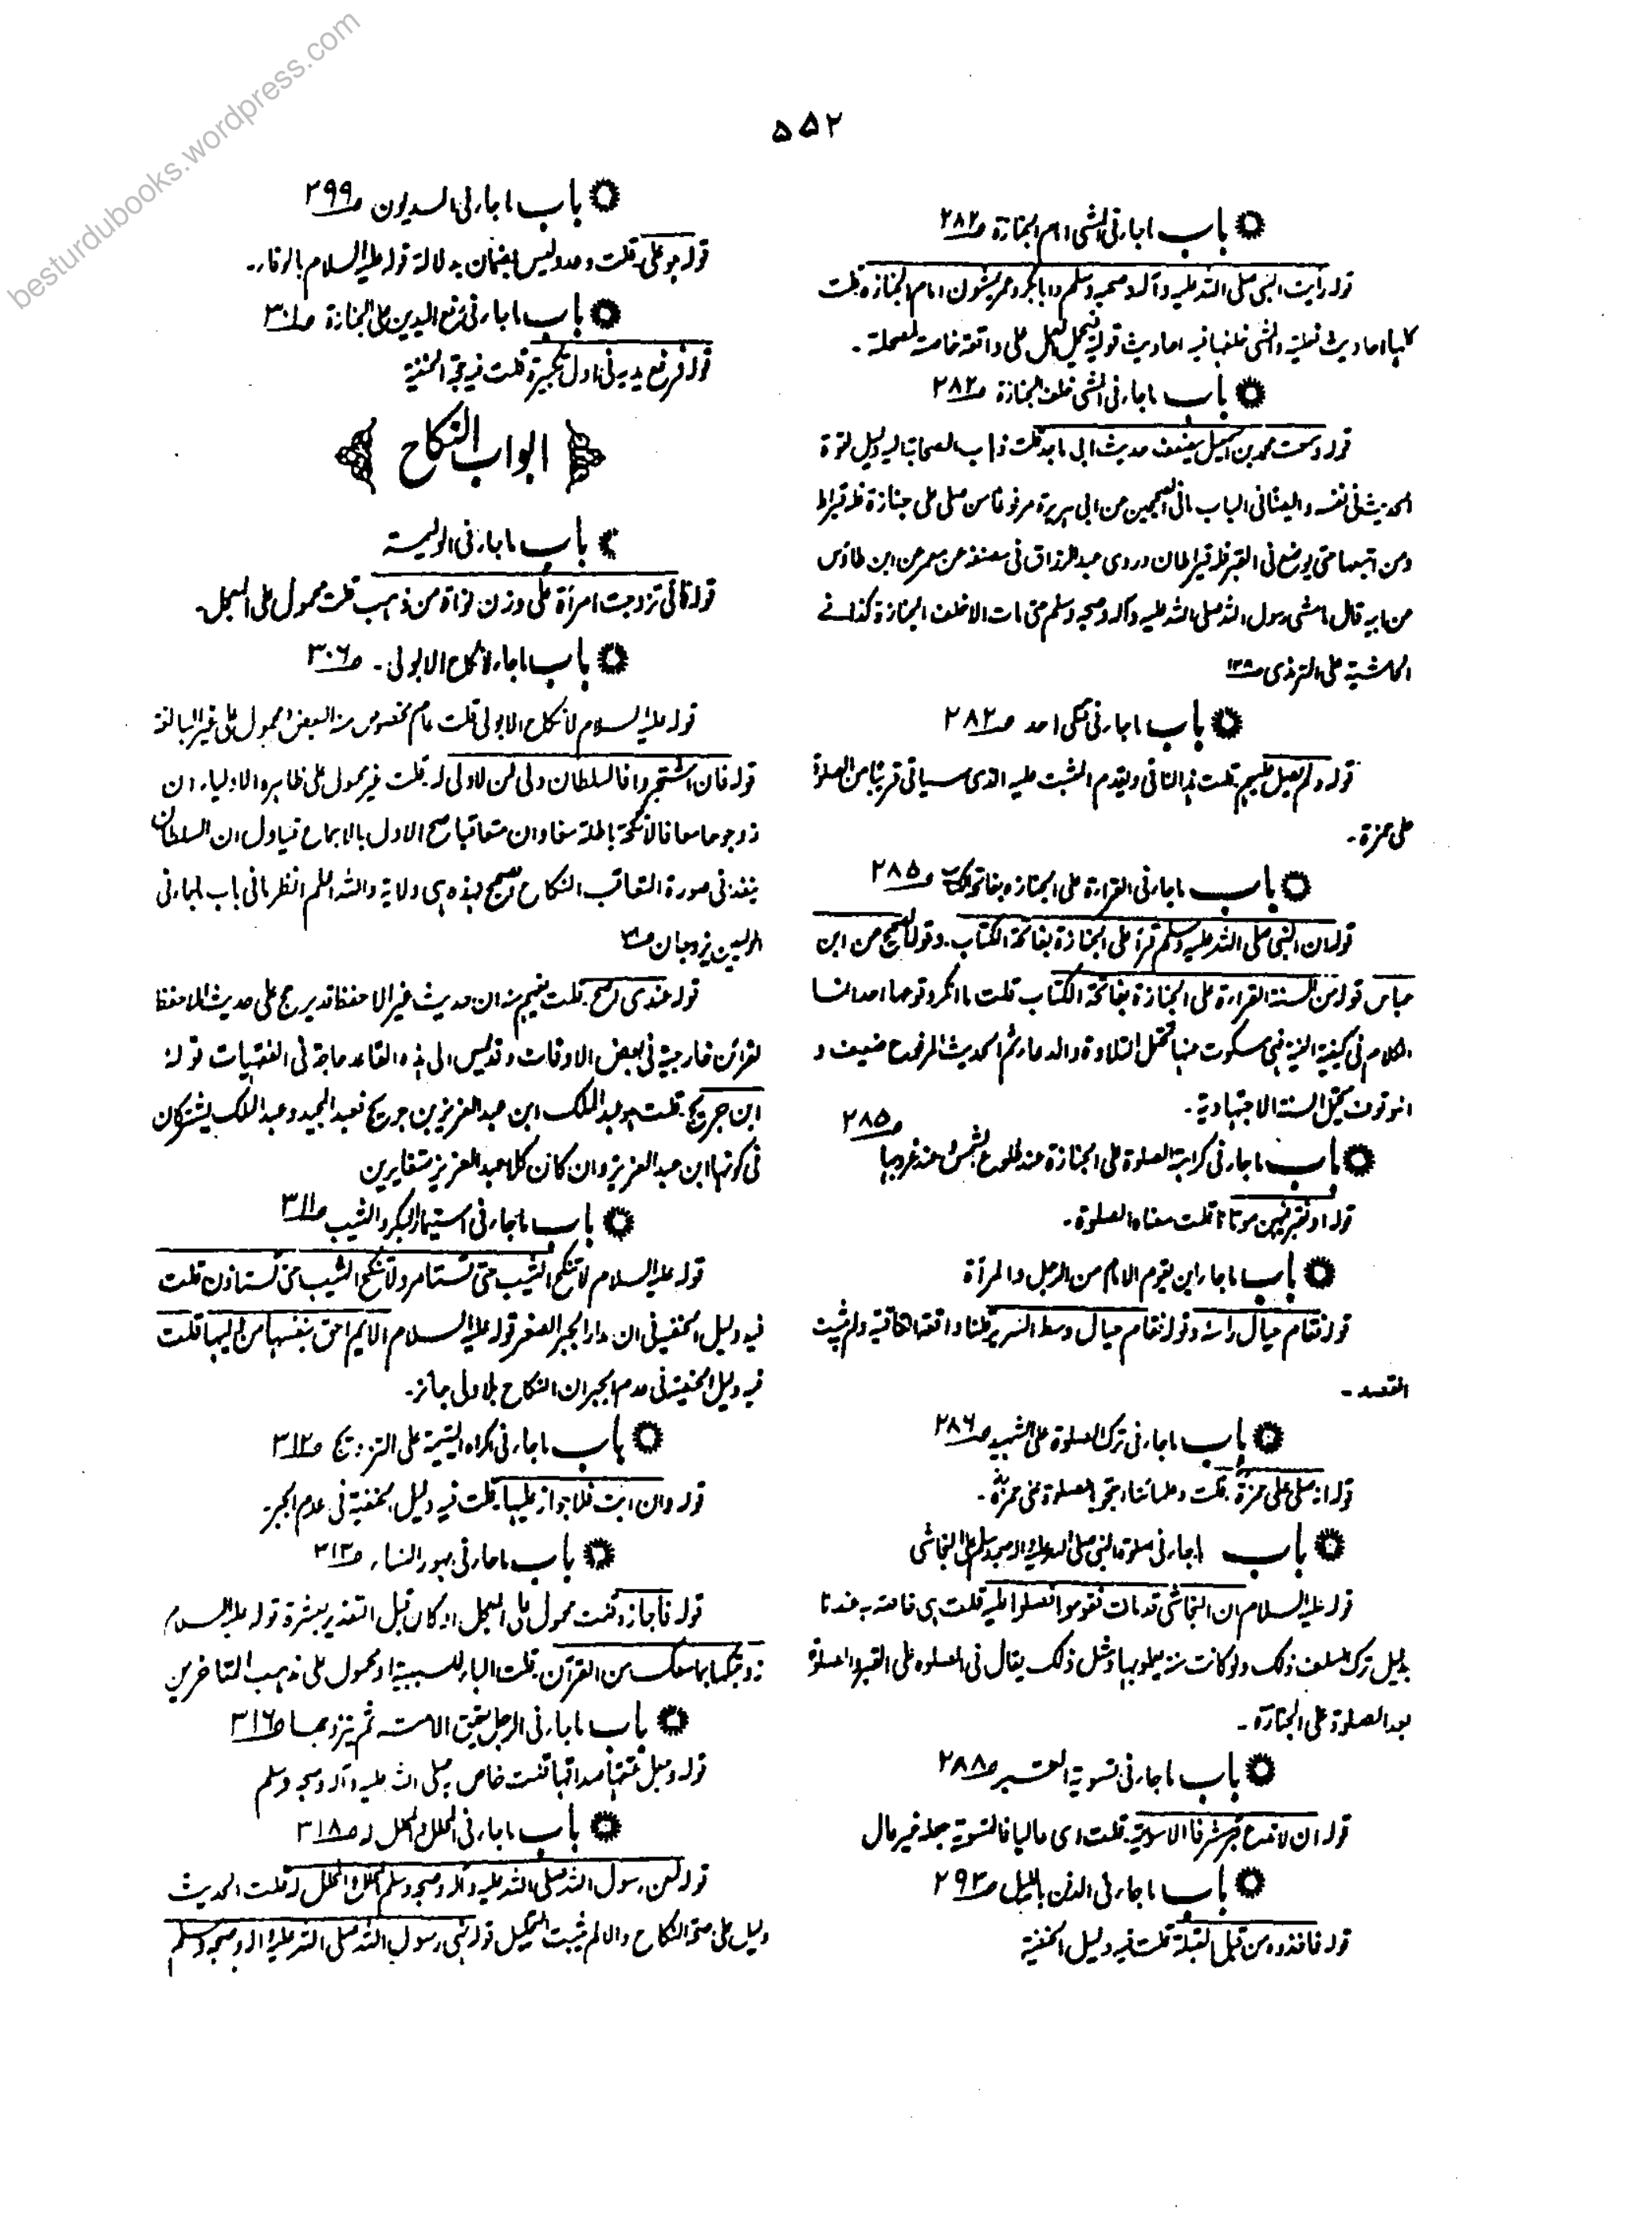 besturdubooks.wordpress.com
۵۵۲
باب ماجاء فی المشی امام الجنازة ص۲۸۲
قوله رأیت النبی صلی الله علیه وآله وصحبه وسلم وابابکر وعمر یمشون امام الجنازه قلت
کلها احادیث فعلیة والمشی خلفها فیه احادیث قولیة فیحمل الفعل علی واقعة خاصة لمصلحة۔
باب ماجاء فی المشی خلف الجنازة ص۲۸۲
قوله وسمعت محمد بن اسمعیل یضعف حدیث ابی ماجد قلت ذهاب الصحابة الیه دلیل لقوة
الحدیث فی نفسه وایضا فی الباب ما فی الصحیحین عن ابی هریرة مرفوعا من صلی علی جنازة فله قیراط
ومن اتبعها حتی یوضع فی القبر فله قیراطان وروی عبد الرزاق فی مصنفه عن معمر عن ابن طاؤس
عن ابیه قال ما مشی رسول الله صلی الله علیه وآله وصحبه وسلم حتی مات الا خلف الجنازة کذا فی
الحاشیة علی الترمذی ص۱۳۸
باب ماجاء فی قتلی احد ص۲۸۲
قوله ولم یصل علیهم قلت هذا النافی ویقدم المثبت علیه الذی سیاتی قریبا من الصلوة
علی حمزة۔
باب ماجاء فی القراءة علی الجنازه بفاتحة الکتاب ص۲۸۵
قوله ان النبی صلی الله علیه وسلم قرأ علی الجنازة بفاتحة الکتاب۔ وقوله الصحیح عن ابن
عباس قوله من السنة القراءة علی الجنازة بفاتحة الکتاب قلت ما انکر وقوعها احد انما
الکلام فی کیفیة النیة فهی سکوت عنها تحتمل التلاوة والدعاء ثم الحدیث المرفوع ضعیف و
الموقوف یحتمل السنة الاجتهادیة۔
ص۲۸۵
باب ماجاء فی کراهیة الصلوة علی الجنازة عند طلوع الشمس وعند غروبها
قوله او نقبر فیهن موتانا قلت معناه الصلوة۔
باب ماجاء این یقوم الامام من الرجل والمرأة
قوله فقام حیال رأسه وقوله فقام حیال وسط السریر قلنا واقعة اتفاقیة ولم یثبت
القصد۔
باب ماجاء فی ترک الصلوة علی الشهید ص۲۸۶
قوله انه صلی علی حمزة قلت وعلمائنا رجحوا الصلوة علی حمزة۔
باب ماجاء فی صلوة النبی صلی الله علیه وآله وصحبه وسلم علی النجاشی
قوله علیه السلام ان النجاشی قد مات فقوموا فصلوا علیه قلت هی خاصة به عندنا
بدلیل ترک السلف ذلک ولو کانت سنة عملوا بها ومثل ذلک یقال فی الصلوه علی القبر والصلوة
بعد الصلوة علی الجنازة۔
باب ماجاء فی تسویة القبر ص۲۸۸
قوله ان لا تدع قبرا مشرفا الا سویته قلت ای عالیا فالتسویة جعله غیر عال
باب ماجاء فی الدفن باللیل ص۲۹۳
قوله فاخذه من قبل القبلة قلت فیه دلیل الحنفیة
باب ماجاء فی المدیون ص۲۹۹
قوله هو علی قلت وعد ولیس بضمان بدلالة قوله علیه السلام بالوفاء۔
باب ماجاء فی رفع الیدین علی الجنازة ص۳۰۱
قوله فرفع یدیه فی اول تکبیرة قلت فیه حجة الحنفیة
ابواب النکاح
باب ماجاء فی الولیمة
قوله فانی تزوجت امرأة علی وزن نواة من ذهب قلت محمول علی المعجل۔
باب ماجاء لا نکاح الا بولی۔ ص۳۰۶
قوله علیه السلام لا نکاح الا بولی قلت عام مخصوص منه البعض او محمول علی غیر البالغة
قوله فان اشتجروا فالسلطان ولی من لا ولی له قلت غیر محمول علی ظاهره والاولیاء ان
زوجوها معا فالانکحة باطلة معا وان متعاقبا صح الاول بالاجماع فیاول ان السلطان
ینفذ فی صورة التعاقب النکاح الصحیح فهذه هی ولایة والله اعلم انظر ما فی باب ماجاء فی
الولیین یزوجان
قوله عندی اصح قلت یفهم منه ان حدیث غیر الاحفظ قد یرجح علی حدیث الاحفظ
لقرائن خارجیة فی بعض الاوقات وقدلیس الی هذه القاعدة حاجة فی الفقهیات قوله
ابن جریج قلت هو عبد الملک ابن عبد العزیز بن جریج فعبد المجید وعبد الملک یشترکان
فی کونهما ابن عبد العزیز وان کان کلا عبد العزیز متغایرین
باب ماجاء فی استیمار البکر والثیب ص۳۱۱
قوله علیه السلام لا تنکح الثیب حتی تستامر ولا تنکح الثیب حتی تستاذن قلت
فیه دلیل الحنفیة فی ان مدار الجبر الصغر قوله علیه السلام الایم احق بنفسها من ولیها قلت
فیه دلیل الحنفیة فی عدم الجبر ان النکاح بلا ولی جائز۔
باب ماجاء فی اکراه الیتیمة علی التزویج ص۳۱۲
قوله وان ابت فلا جواز علیها قلت فیه دلیل الحنفیة فی عدم الجبر۔
باب ماجاء فی مهور النساء ص۳۱۳
قوله فاجازه قلت محمول علی المعجل او کان قبل التقدیر بعشرة قوله علیه السلام
زوجتکها بما معک من القرآن۔ قلت الباء للسببیة او محمول علی مذهب المتاخرین
باب ماجاء فی الرجل یعتق الامة ثم یتزوجها ص۳۱۶
قوله وجعل عتقها صداقها قلت خاص به صلی الله علیه وآله وصحبه وسلم
باب ماجاء فی المحل والمحلل له ص۳۱۸
قوله لعن رسول الله صلی الله علیه وآله وصحبه وسلم المحل والمحلل له قلت الحدیث
دلیل علی صحة النکاح والا لم یثبت التحلیل قوله نهی رسول الله صلی الله علیه وآله وصحبه وسلم